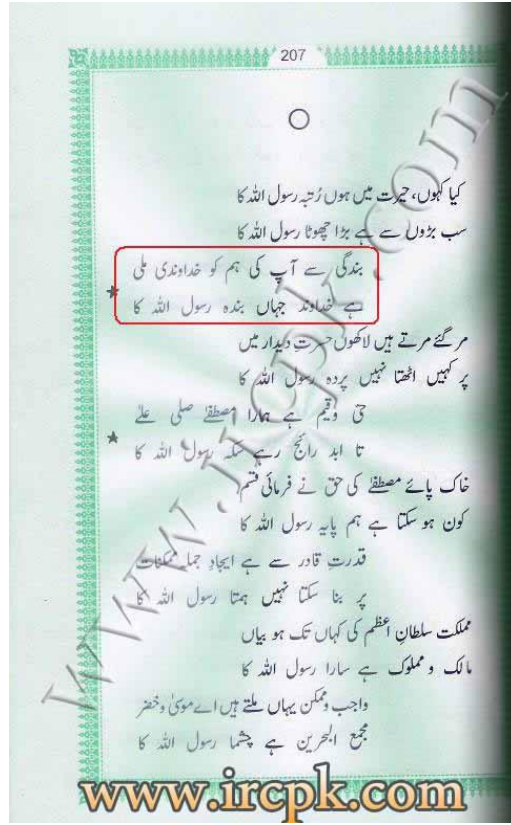 207
کیا کہوں، حیرت میں ہوں رُتبہ رسول اللہ کا
سب بڑوں سے ہے بڑا چھوٹا رسول اللہ کا
بندگی سے آپ کی ہم کو خداوندی ملی
ہے خداوند جہاں بندہ رسول اللہ کا
مر گئے مرتے ہیں لاکھوں حسرتِ دیدار میں
پر کہیں اٹھتا نہیں پردہ رسول اللہ کا
حیّ و قیم ہے ہمارا مصطفےٰ صلی علےٰ
تا ابد رائج رہے سکہ رسول اللہ کا
خاک پائے مصطفےٰ کی حق نے فرمائی قسم
کون ہو سکتا ہے ہم پایہ رسول اللہ کا
قدرتِ قادر سے ہے ایجادِ جملہ ممکنات
پر بنا سکتا نہیں ہمتا رسول اللہ کا
مملکت سلطانِ اعظم کی کہاں تک ہو بیاں
مالک و مملوک ہے سارا رسول اللہ کا
واجب وممکن یہاں ملتے ہیں اے موسیٰ وخضر
مجمع البحرین ہے چشما رسول اللہ کا
www.ircpk.com
www.ircpk.com